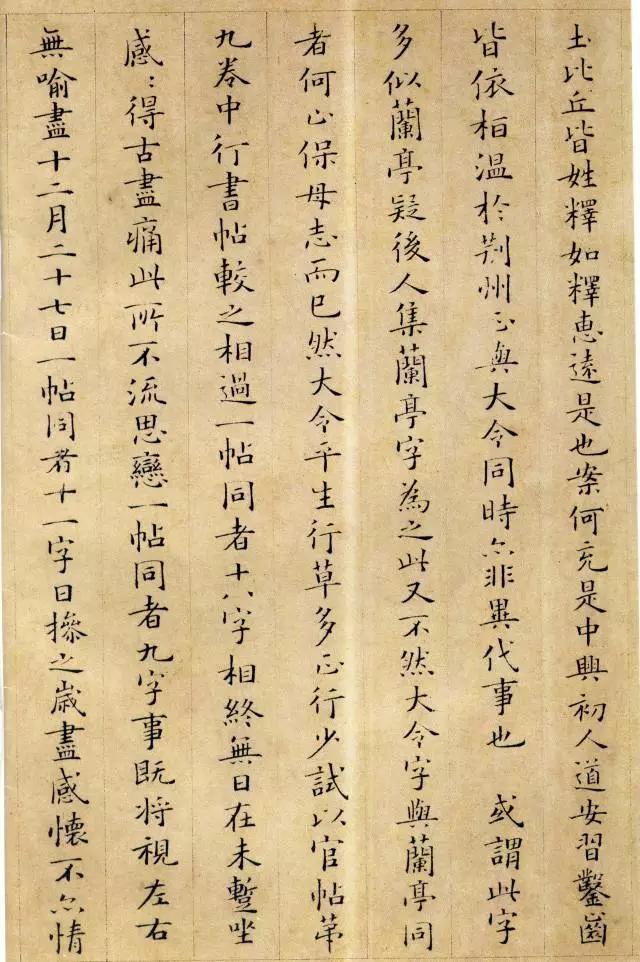 土比丘皆姓釋如釋惠遠是也案何充是中興初人道安習鑿齒
皆依桓溫於荊州正與大令同時亦非異代事也 或謂此字
多似蘭亭疑後人集蘭亭字為之此又不然大令字與蘭亭同
者何止保母志而已然大令平生行草多正行少試以官帖第
九卷中行書帖較之相過一帖同者十八字相終無日在未蹔坐
感〻得古盡痛此所不流思戀一帖同者九字事既将視左右
無喻盡十二月二十七日一帖同者十一字日操之歲盡感懷不亦情